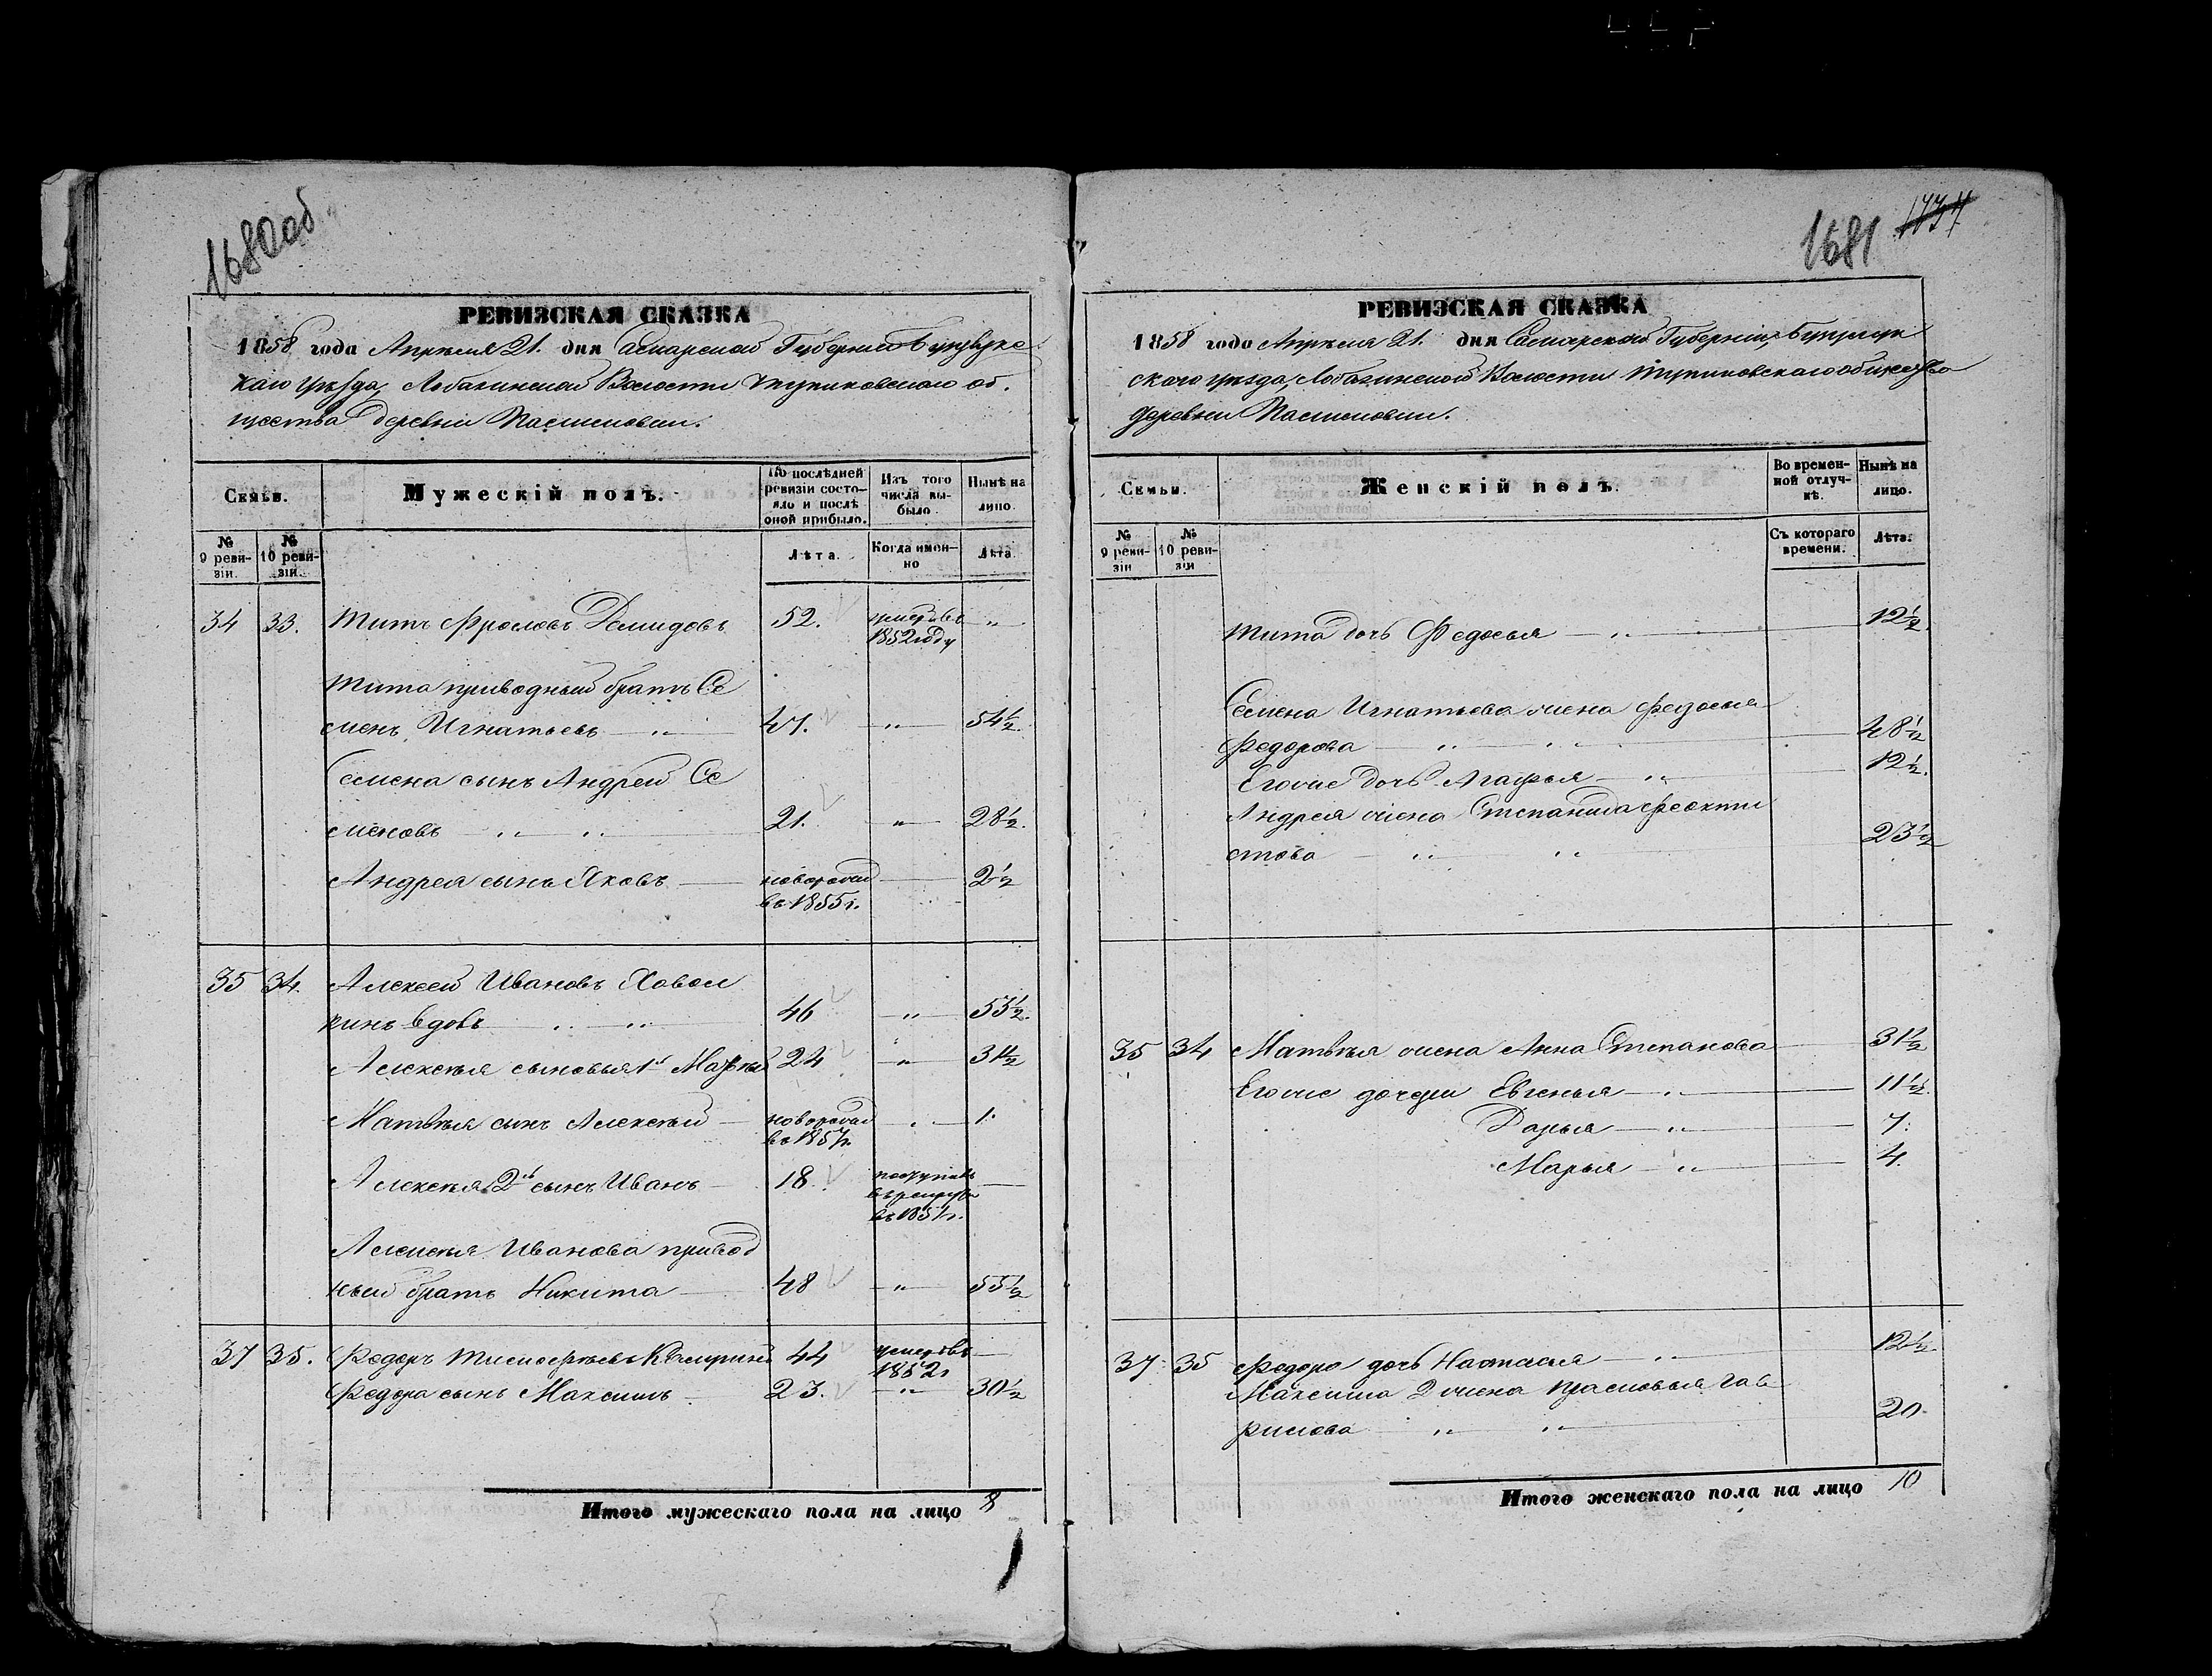 1680об.
РЕВИЗСКАЯ СКАЗКА
1858 года Апреля 21. дня Самарской Губернии Бузулукс
каго уѣзда, Лобазинской Волости об.
щества деревни
Семьи.
Мужескій полъ.
По послѣдней ревизіи состояло и послѣ оной прибыло.
Изъ того числа выбыло.
Нынѣ на лицо.
№ 9 ревизіи.
№ 10 ревизіи.
Лѣта.
Когда именно
Лѣта.
34 33. Титъ Фроловъ Демидовъ 52. умеръ въ 1852 году „
Тита приводный братъ Се
менъ Игнатьевъ — „ 47. „ 54½.
Семена сынъ Андрей Се
меновъ — „ „ 21. „ 28½.
Андрея сынъ Яковъ — новорожд въ 1855 г. — 2½
35 34. Алексей Ивановъ
кинъ вдовъ „ „ 46 „ 53½.
Алексѣя сыновья 1й 24 „ 31½
Матвѣя сынъ Алексѣй — новорожд въ 1857г. „ 1.
Алексѣя 2й сынъ Иванъ — 18. поступилъ въ рекруты въ 1851г. —
Алексѣя Иванова привод
ный братъ Никита — 48 „ 55½
37 35. Федоръ Тимофѣевъ 44 умеръ въ 1852г —
Федора сынъ Максимъ — 23. „ 30½
Итого мужескаго пола на лицо 8
1681
РЕВИЗСКАЯ СКАЗКА
1858 года Апреля 21. дня Самарской Губерніи, Бузулук
скаго уѣзда, Лобазинской Волости общества
деревни
Семьи.
Женскій полъ.
Во временной отлучкѣ.
Нынѣ на лицо.
№ 9 ревизіи
№ 10 ревизіи
Съ котораго времени.
Лѣта.
Тита дочь Федосья „ — 12½.
Семена Игнатьева жена Федосья
Федорова — „ „ — 48½
Егоже дочь Агафья — „ — 12½.
Андрея жена Степанида Феокти
стова — „ „ 23½
35 34 Матвѣя жена Анна Степанова — 31½
Егоже дочери Евгенья — „ — 11½.
Дарья — „ — 7.
Марья — „ — 4.
37. 35 Федора дочь Настасья — „ 12½.
Максима 2 жена Прасковья Гав
рилова „ „ 20.
Итого женскаго пола на лицо 10